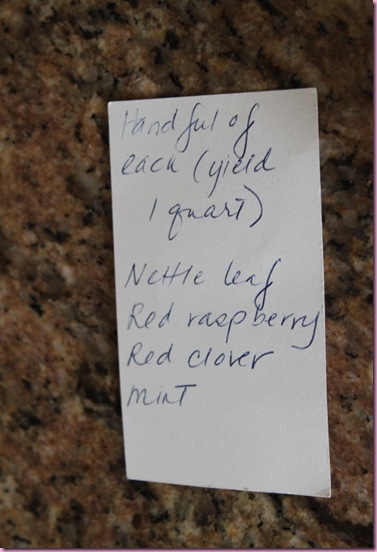 Handful of
each (yield
1 quart)
Nettle leaf
Red raspberry
Red clover
mint